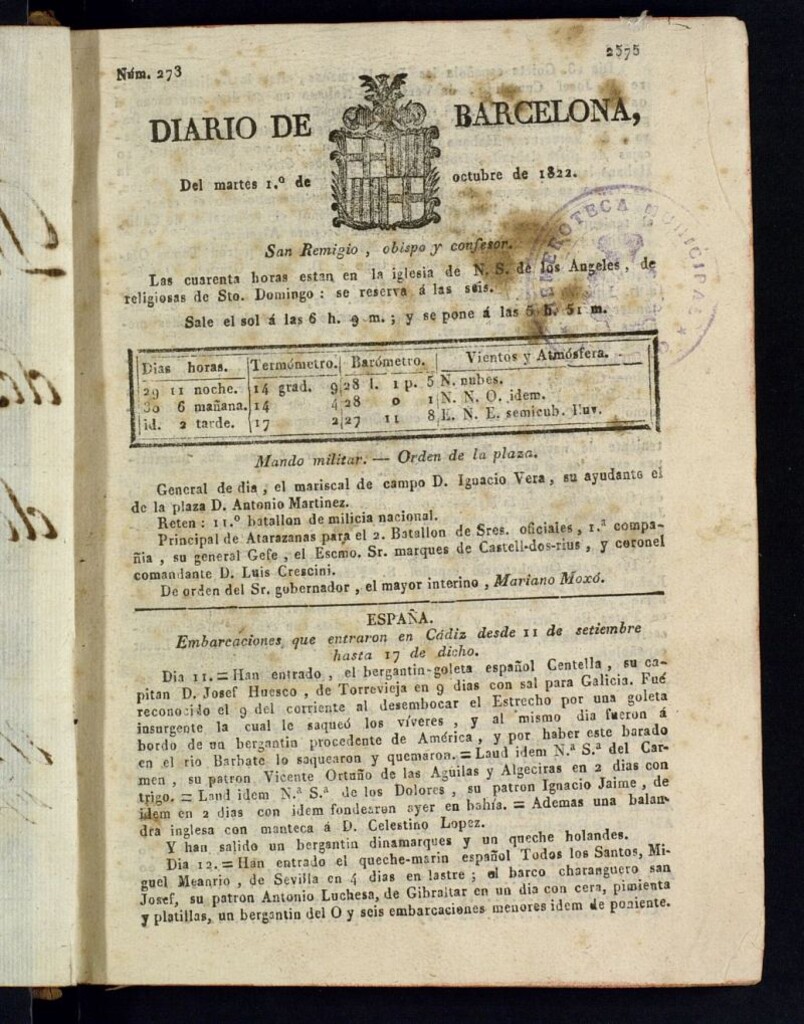 Núm. 273
2575
DIARIO DE BARCELONA,
Del martes 1.º de octubre de 1822.
HEMEROTECA MUNICIPAL
San Remigio, obispo y confesor.
Las cuarenta horas estan en la iglesia de N. S. de los Angeles, de
religiosas de Sto. Domingo: se reserva á las seis.
Sale el sol á las 6 h. 9 m.; y se pone á las 5 h. 51 m.
Dias horas. Termómetro. Barómetro. Vientos y Atmósfera.
29 11 noche. 14 grad. 9 28 l. 1 p. 5 N. nubes.
30 6 mañana. 14 4 28 0 1 N. N. O. idem.
id. 2 tarde. 17 2 27 11 8 E. N. E. semicub. lluv.
Mando militar. — Orden de la plaza.
General de dia, el mariscal de campo D. Ignacio Vera, su ayudante el
de la plaza D. Antonio Martinez.
Reten: 11.º batallon de milicia nacional.
Principal de Atarazanas para el 2. Batallon de Sres. oficiales, 1.ª compa-
ñia, su general Gefe, el Escmo. Sr. marques de Castell-dos-rius, y coronel
comandante D. Luis Crescini.
De orden del Sr. gobernador, el mayor interino, Mariano Moxó.
ESPAÑA.
Embarcaciones que entraron en Cádiz desde 11 de setiembre
hasta 17 de dicho.
Dia 11. = Han entrado, el bergantin-goleta español Centella, su ca-
pitan D. Josef Huesco, de Torrevieja en 9 dias con sal para Galicia. Fué
reconocido el 9 del corriente al desembocar el Estrecho por una goleta
insurgente la cual le saqueó los víveres, y al mismo dia fueron á
bordo de un bergantin procedente de América, y por haber este barado
en el rio Barbate lo saquearon y quemaron. = Laud idem N.ª S.ª del Car-
men, su patron Vicente Ortuño de las Aguilas y Algeciras en 2 dias con
trigo. = Laud idem N.ª S.ª de los Dolores, su patron Ignacio Jaime, de
idem en 2 dias con idem fondearon ayer en bahía. = Ademas una balan-
dra inglesa con manteca á D. Celestino Lopez.
Y han salido un bergantin dinamarques y un queche holandes.
Dia 12. = Han entrado el queche-marin español Todos los Santos, Mi-
guel Meanrio, de Sevilla en 4 dias en lastre; el barco charanguero san
Josef, su patron Antonio Luchesa, de Gibraltar en un dia con cera, pimienta
y platillas, un bergantin del O y seis embarcaciones menores idem de poniente.